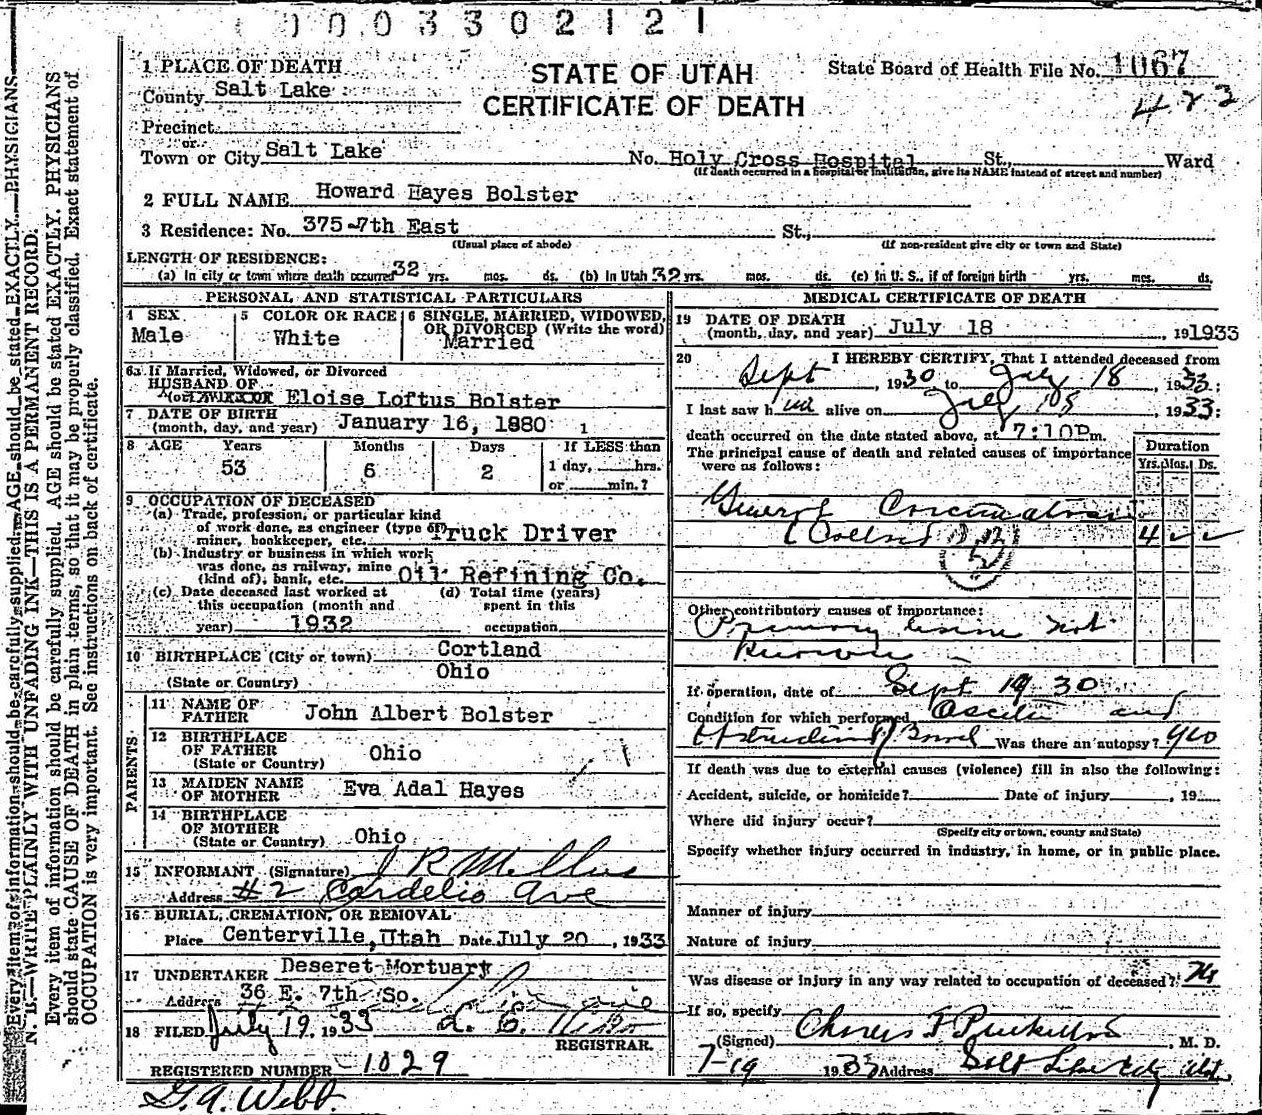 0003302121
1 PLACE OF DEATH
County Salt Lake
STATE OF UTAH
CERTIFICATE OF DEATH
State Board of Health File No. 1067
423
Precinct
or
Town or City Salt Lake No. Holy Cross Hospital St., Ward
(If death occurred in a hospital or institution, give its NAME instead of street and number)
2 FULL NAME Howard Hayes Bolster
3 Residence: No. 375-7th East St.,
(Usual place of abode) (If non-resident give city or town and State)
LENGTH OF RESIDENCE:
(a) In city or town where death occurred 32 yrs. mos. ds. (b) In Utah 32 yrs. mos. ds. (c) In U. S., if of foreign birth yrs. mos. ds.
PERSONAL AND STATISTICAL PARTICULARS
4 SEX
Male
5 COLOR OR RACE
White
6 SINGLE, MARRIED, WIDOWED,
OR DIVORCED (Write the word)
Married
6a If Married, Widowed, or Divorced
HUSBAND OF
Eloise Loftus Bolster
7 DATE OF BIRTH
(month, day, and year) January 16, 1880 1
8 AGE Years Months Days If LESS than
53 6 2 1 day, hrs.
or min.?
9 OCCUPATION OF DECEASED
(a) Trade, profession, or particular kind
of work done, as engineer (type of)
miner, bookkeeper, etc. Truck Driver
(b) Industry or business in which work
was done, as railway, mine
(kind of), bank, etc. Oil Refining Co.
(c) Date deceased last worked at (d) Total time (years)
this occupation (month and spent in this
year) 1932 occupation
10 BIRTHPLACE (City or town) Cortland
(State or Country) Ohio
PARENTS
11 NAME OF
FATHER John Albert Bolster
12 BIRTHPLACE
OF FATHER
(State or Country) Ohio
13 MAIDEN NAME
OF MOTHER Eva Adal Hayes
14 BIRTHPLACE
OF MOTHER
(State or Country) Ohio
15 INFORMANT (Signature) J R
Address #2 Cordelio Ave
16 BURIAL, CREMATION, OR REMOVAL
Place Centerville, Utah Date July 20, 1933
17 UNDERTAKER Deseret Mortuary
Address 36 E. 7th So.
18 FILED July 19, 1933
REGISTRAR.
REGISTERED NUMBER 1029
G. A. Webb.
MEDICAL CERTIFICATE OF DEATH
19 DATE OF DEATH
(month, day, and year) July 18, 19 1933
20 I HEREBY CERTIFY, That I attended deceased from
Sept, 1930 to July 18, 1933:
I last saw him alive on July 18, 1933:
death occurred on the date stated above, at 7:10P m.
The principal cause of death and related causes of importance
were as follows:
Duration
Yrs. Mos. Ds.
General Carcinomatosis
4
Other contributory causes of importance:
Primary lesion not
known
If operation, date of Sept 1930
Condition for which performed Ascites and
Obstruction of Bowel Was there an autopsy?
If death was due to external causes (violence) fill in also the following:
Accident, suicide, or homicide? Date of injury, 19
Where did injury occur?
(Specify city or town, county and State)
Specify whether injury occurred in industry, in home, or in public place.
Manner of injury
Nature of injury
Was disease or injury in any way related to occupation of deceased?
If so, specify
(Signed) Charles F M. D.
7-19 1933 Address Salt Lake City Utah
Every item of information should be carefully supplied. AGE should be stated EXACTLY. PHYSICIANS
N. B.—WRITE PLAINLY WITH UNFADING INK—THIS IS A PERMANENT RECORD.
Every item of information should be carefully supplied. AGE should be stated EXACTLY. PHYSICIANS
should state CAUSE OF DEATH in plain terms, so that it may be properly classified. Exact statement of
OCCUPATION is very important. See instructions on back of certificate.